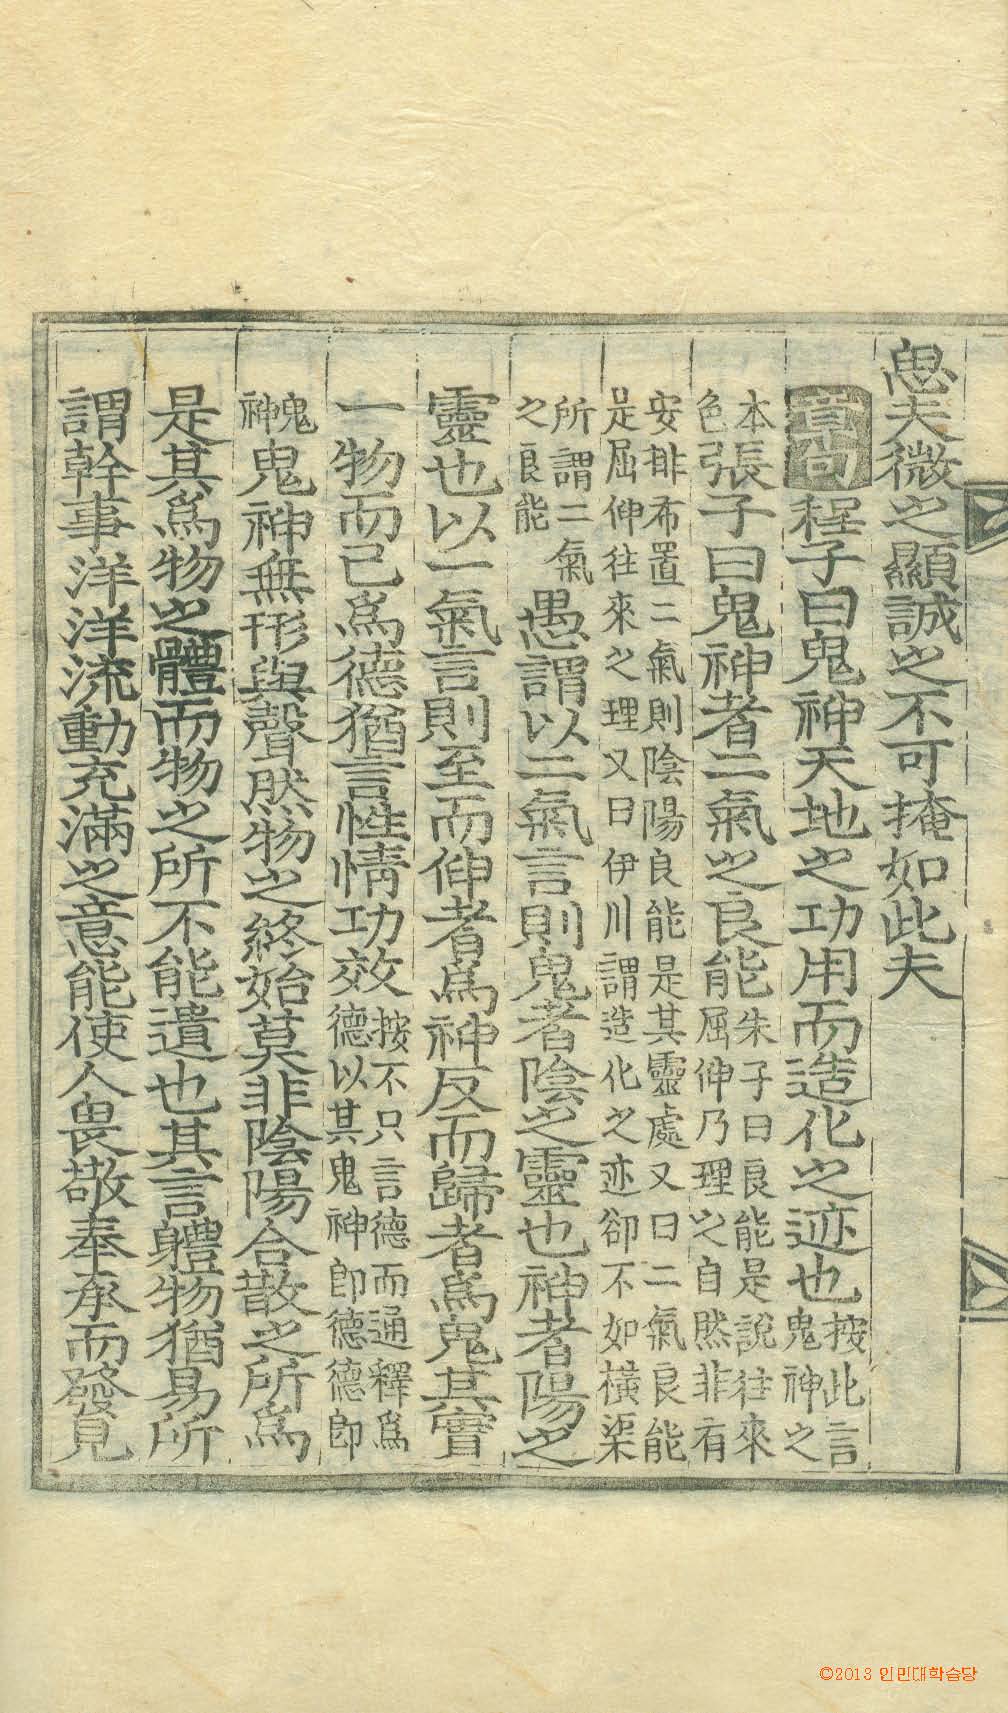 思夫微之顯誠之不可掩如此夫
章句程子曰鬼神天地之功用而造化之迹也按此言鬼神之
本色張子曰鬼神者二氣之良能朱子曰良能是說往來屈伸乃理之自然非有
安排布置二氣則陰陽良能是其靈處又曰二氣良能是屈伸往來之理又曰伊川謂造化之迹卻不如橫渠
所謂二氣之良能愚謂以二氣言則鬼者陰之靈也神者陽之
靈也以一氣言則至而伸者爲神反而歸者爲鬼其實
一物而已爲德猶言性情功效按不只言德而通釋爲德以其鬼神卽德德卽
鬼神鬼神無形與聲然物之終始莫非陰陽合散之所爲
是其爲物之體而物之所不能遺也其言體物猶易所
謂幹事洋洋流動充滿之意能使人畏敬奉承而發見
©2013 인민대학습당